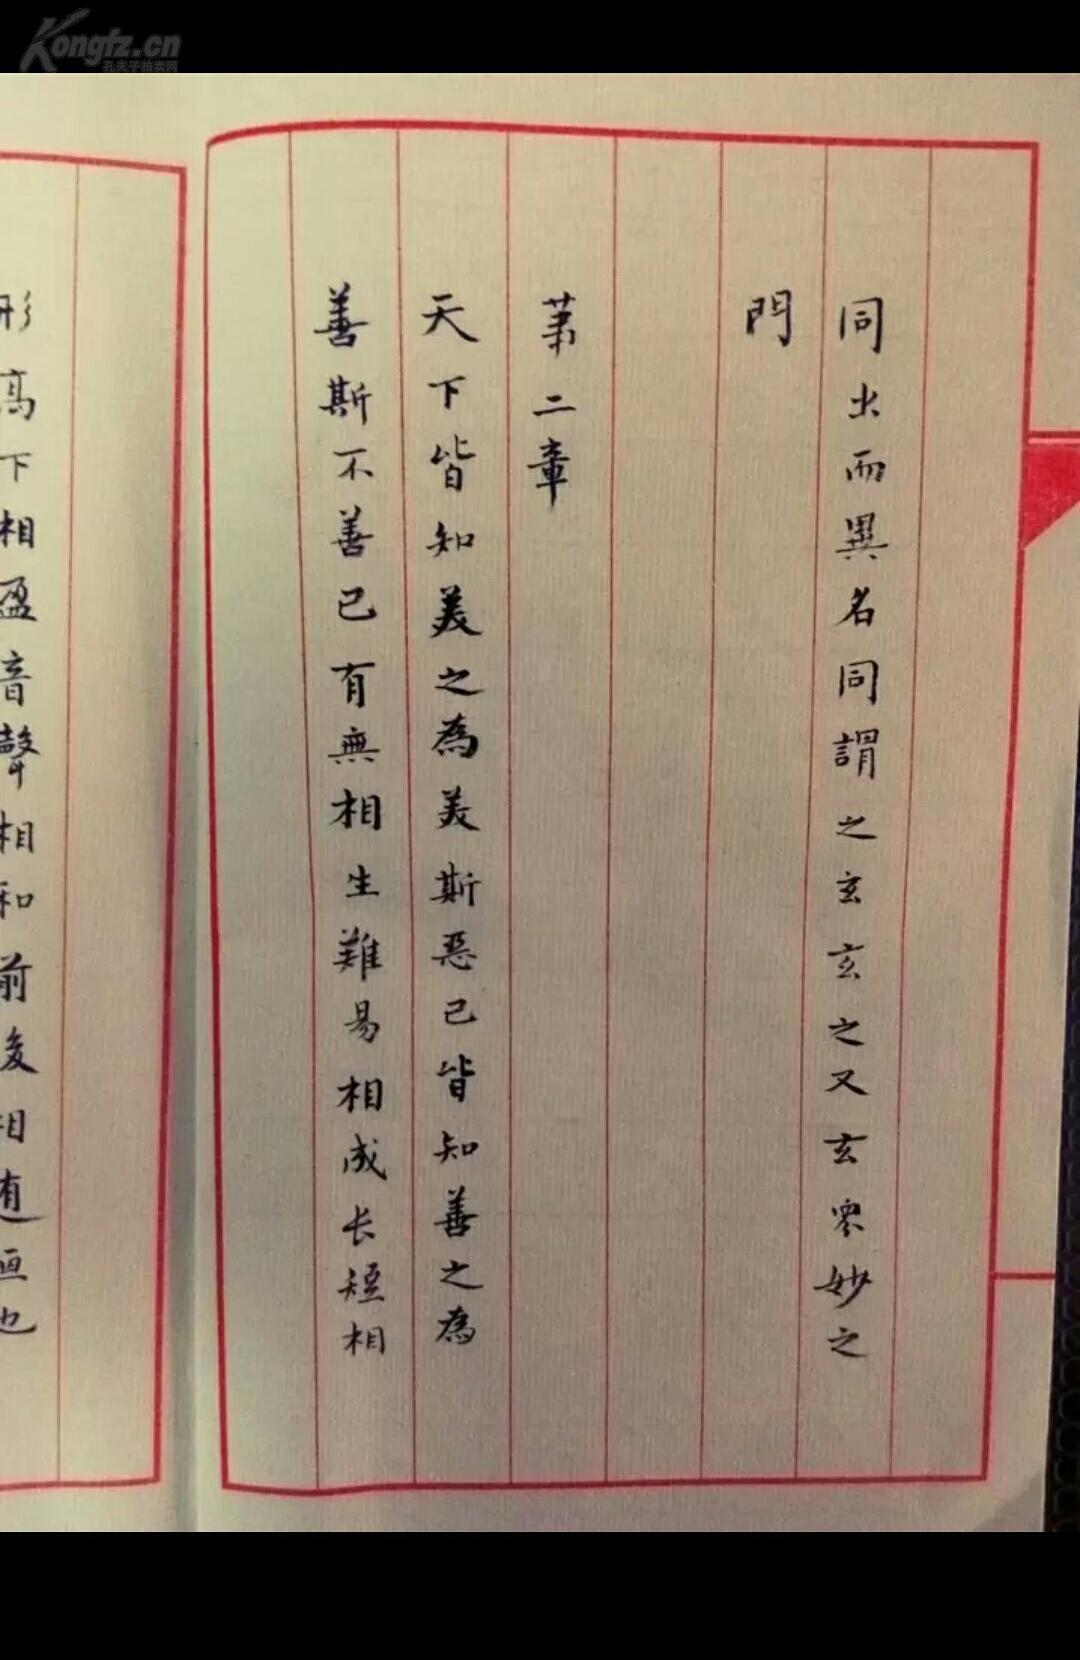 Kongfz.cn
孔夫子拍卖网
同出而異名同謂之玄玄之又玄衆妙之
門
第二章
天下皆知美之為美斯惡已皆知善之為
善斯不善已有無相生難易相成长短相
形高下相盈音聲相和前後相随恒也